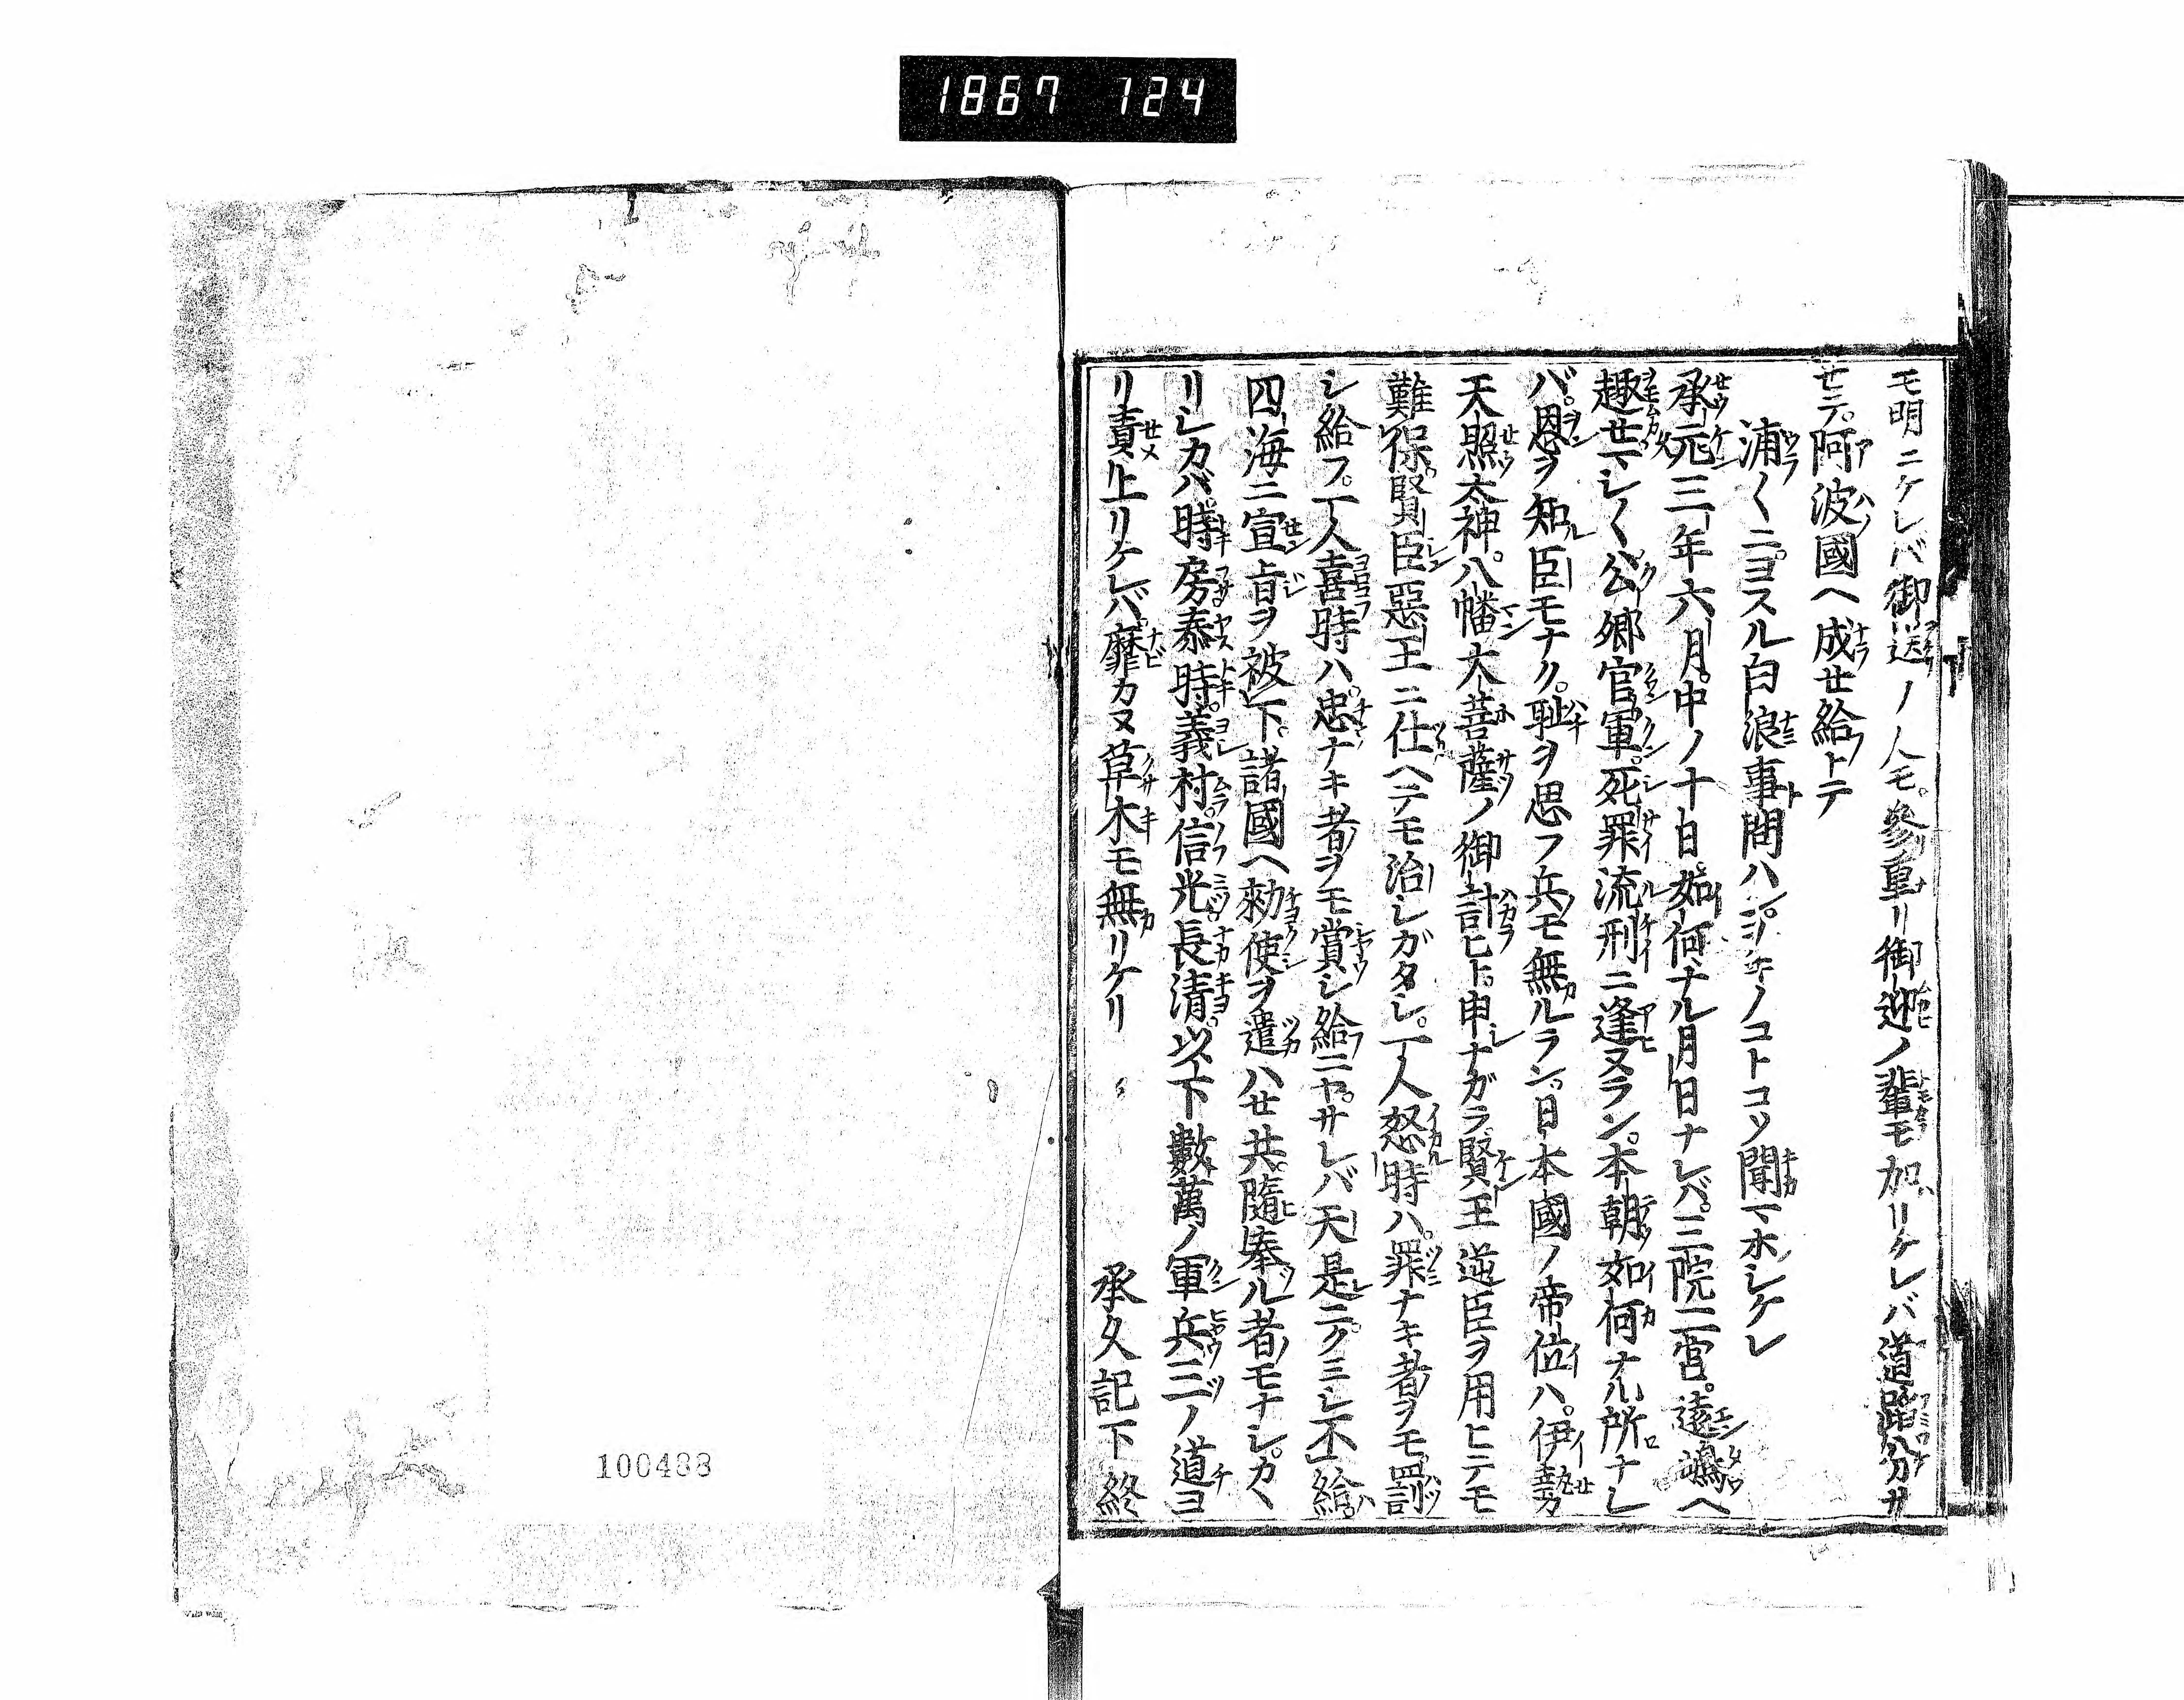 1867 124
モ明ニケレバ御送ノ人モ。參重リ御迎ノ輩モ加リケレバ道路分サ
セテ。阿波國ヘ成セ給トテ
浦〱ニ。ヨスル白浪事問ハン。ヲキノコトコソ聞マホシケレ
承元三年六月。中ノ十日。如何ナル月日ナレバ。三院二宮。遠嶋ヘ
趣セマシ〱。公卿官軍。死罪流刑ニ逢ヌラン。本朝如何ナル所ナレ
バ。恩ヲ知臣モナク。恥ヲ思フ兵モ無ルラン。日本國ノ帝位ハ。伊勢
天照太神。八幡大菩薩ノ御計ヒト。申ナガラ。賢王逆臣ヲ用ヒテモ
難保。賢臣惡王ニ仕ヘテモ治シガタシ。一人怒時ハ。罪ナキ者ヲモ罰
シ給フ。一人喜時ハ。忠ナキ者ヲモ賞シ給ニヤ。サレバ天是ニクミシ不給。
四海ニ宣旨ヲ被下。諸國ヘ勅使ヲ遣ハセ共。隨奉ル者モナシ。カヽ
リシカバ。時房泰時。義村。信光。長清。以下數萬ノ軍兵三ノ道ヨ
リ責上リケレバ。靡カヌ草木モ無リケリ
承久記下終
100488